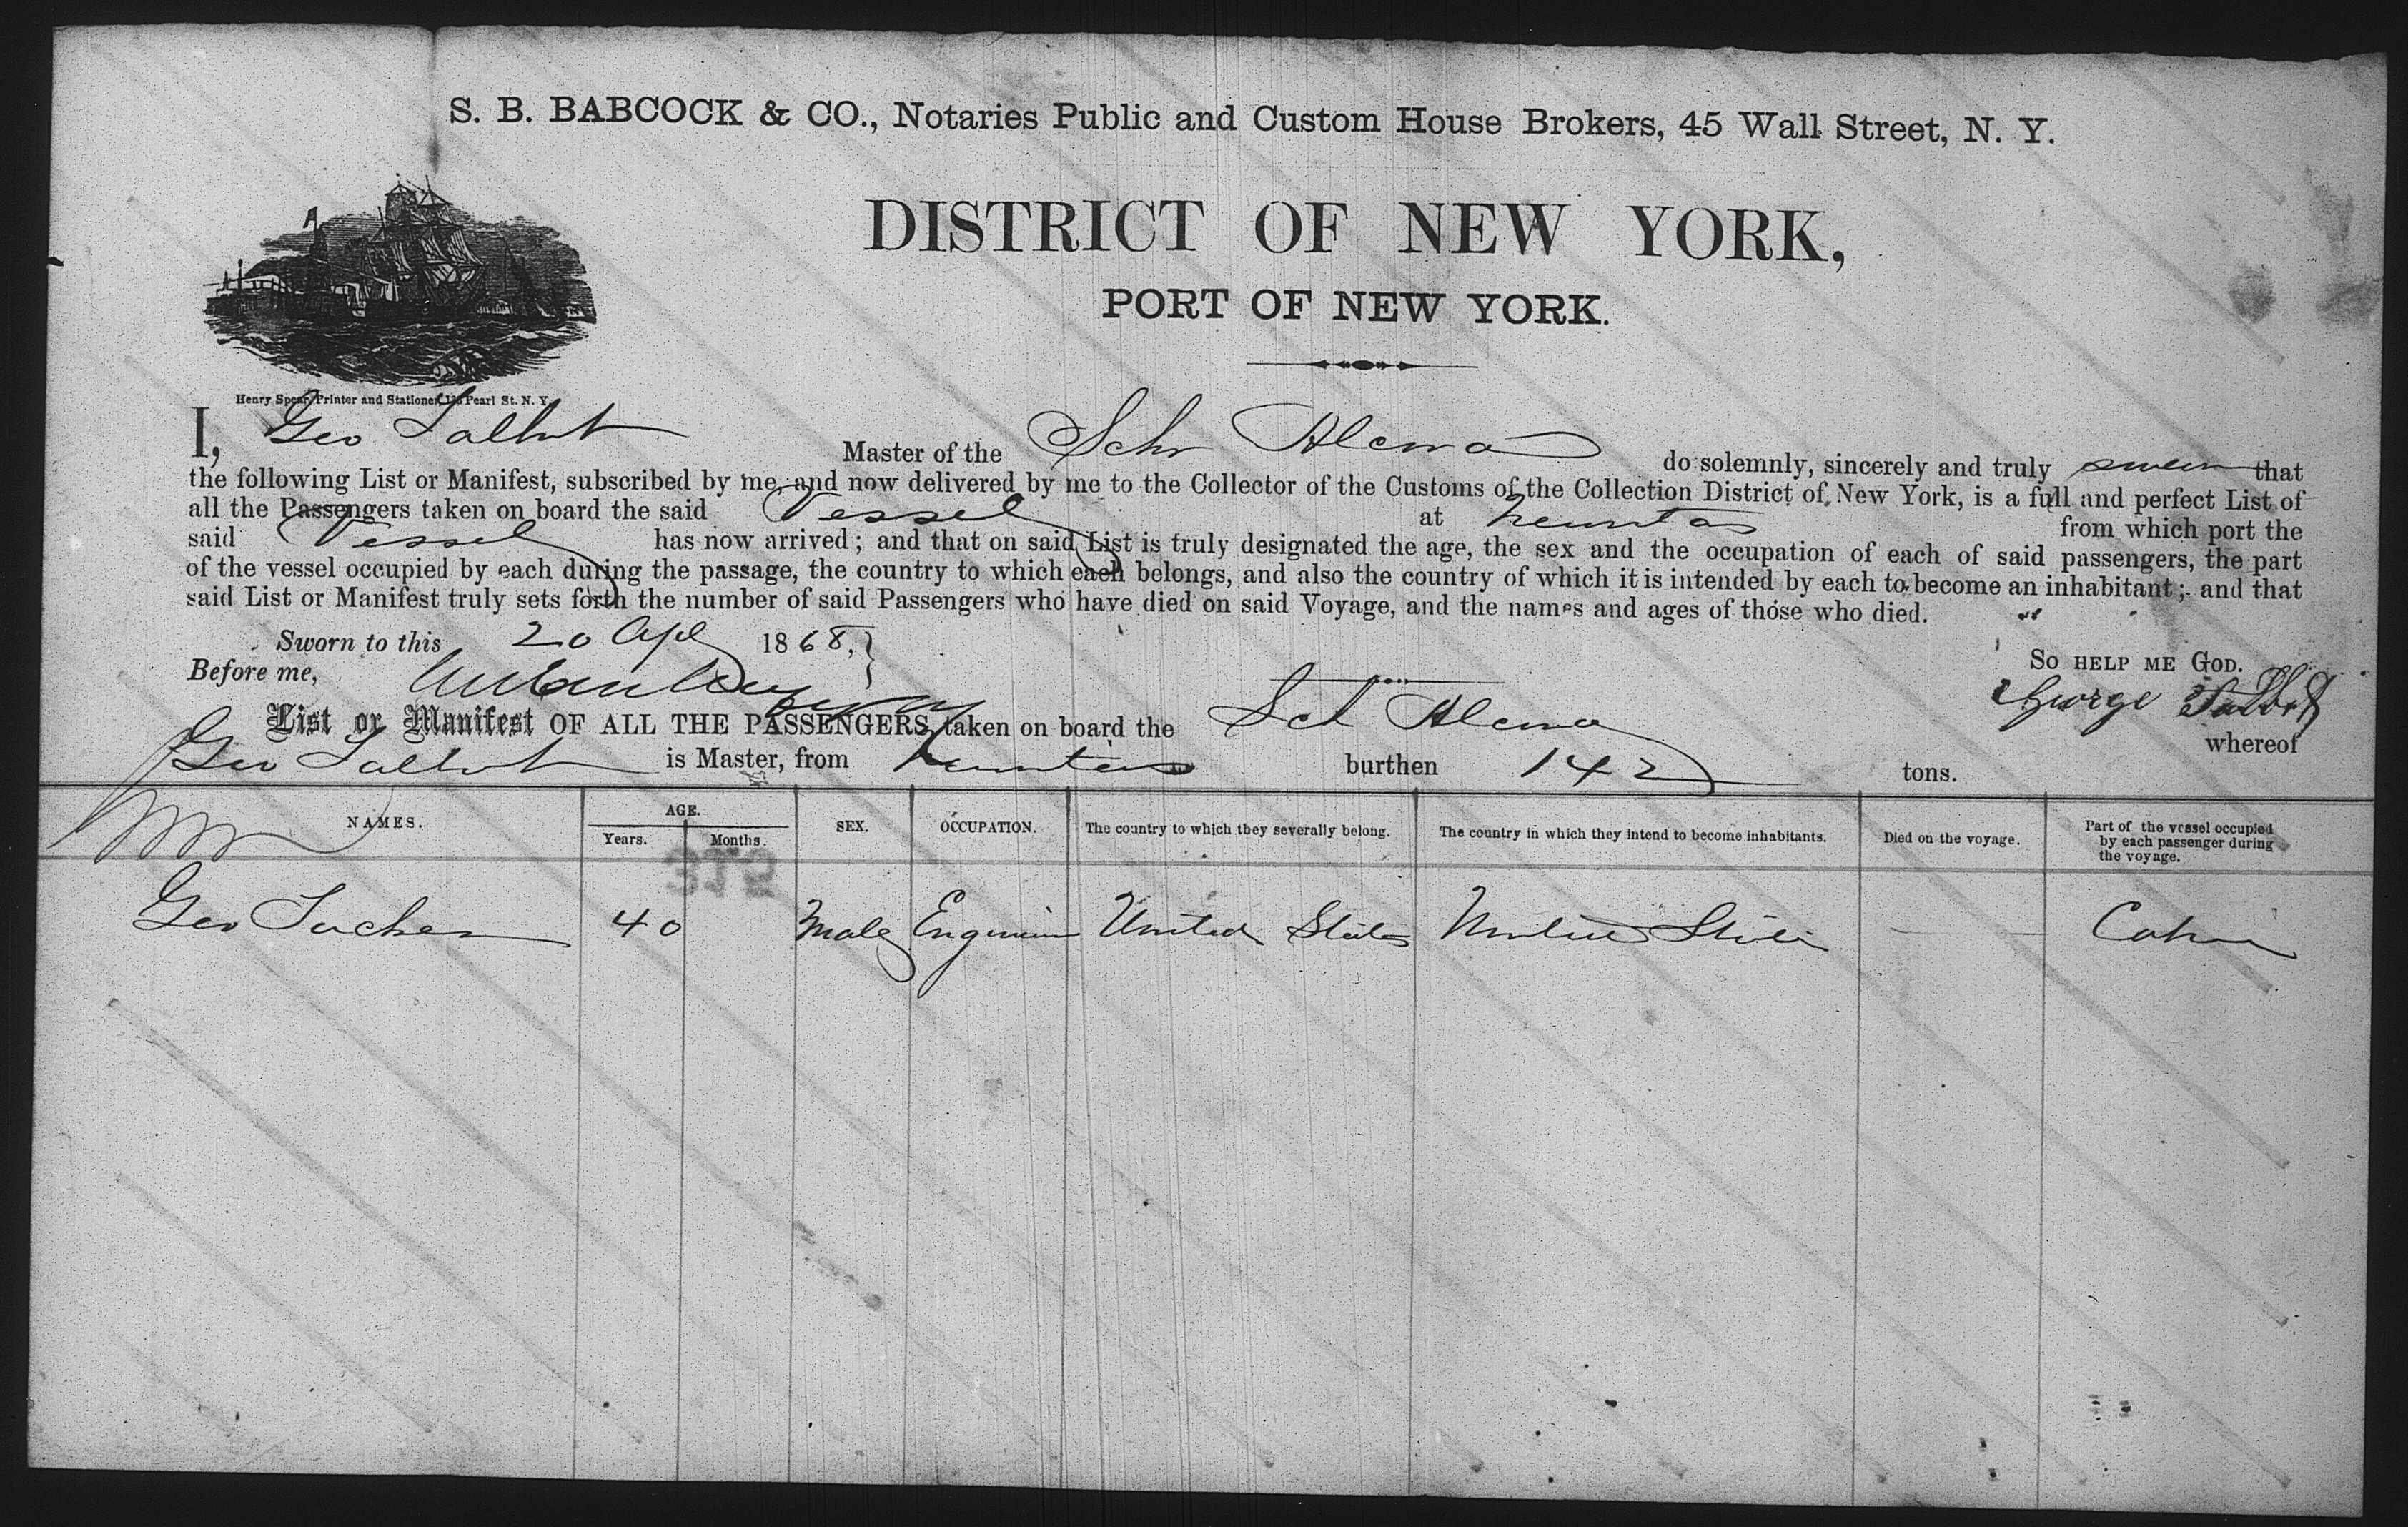 S. B. BABCOCK & CO., Notaries Public and Custom House Brokers, 45 Wall Street, N. Y.
DISTRICT OF NEW YORK,
PORT OF NEW YORK.
Henry Spear, Printer and Stationer, Pearl St. N. Y.
I, Geo Talbot Master of the Schr Alcma do solemnly, sincerely and truly swear that
the following List or Manifest, subscribed by me, and now delivered by me to the Collector of the Customs of the Collection District of New York, is a full and perfect List of
all the Passengers taken on board the said Vessel at Nuevitas from which port the
said Vessel has now arrived; and that on said List is truly designated the age, the sex and the occupation of each of said passengers, the part
of the vessel occupied by each during the passage, the country to which each belongs, and also the country of which it is intended by each to become an inhabitant; and that
said List or Manifest truly sets forth the number of said Passengers who have died on said Voyage, and the names and ages of those who died.
Sworn to this 20 Apl 1868,
So HELP ME GOD.
Before me,
George Talbot
List or Manifest OF ALL THE PASSENGERS taken on board the Sch Alcma whereof
Geo Talbot is Master, from Nuevitas burthen 142 tons.
NAMES. AGE. SEX. OCCUPATION. The country to which they severally belong. The country in which they intend to become inhabitants. Died on the voyage. Part of the vessel occupied
Years. Months. by each passenger during
the voyage.
Geo Tucker 40 Male Engineer United States United States Cabin